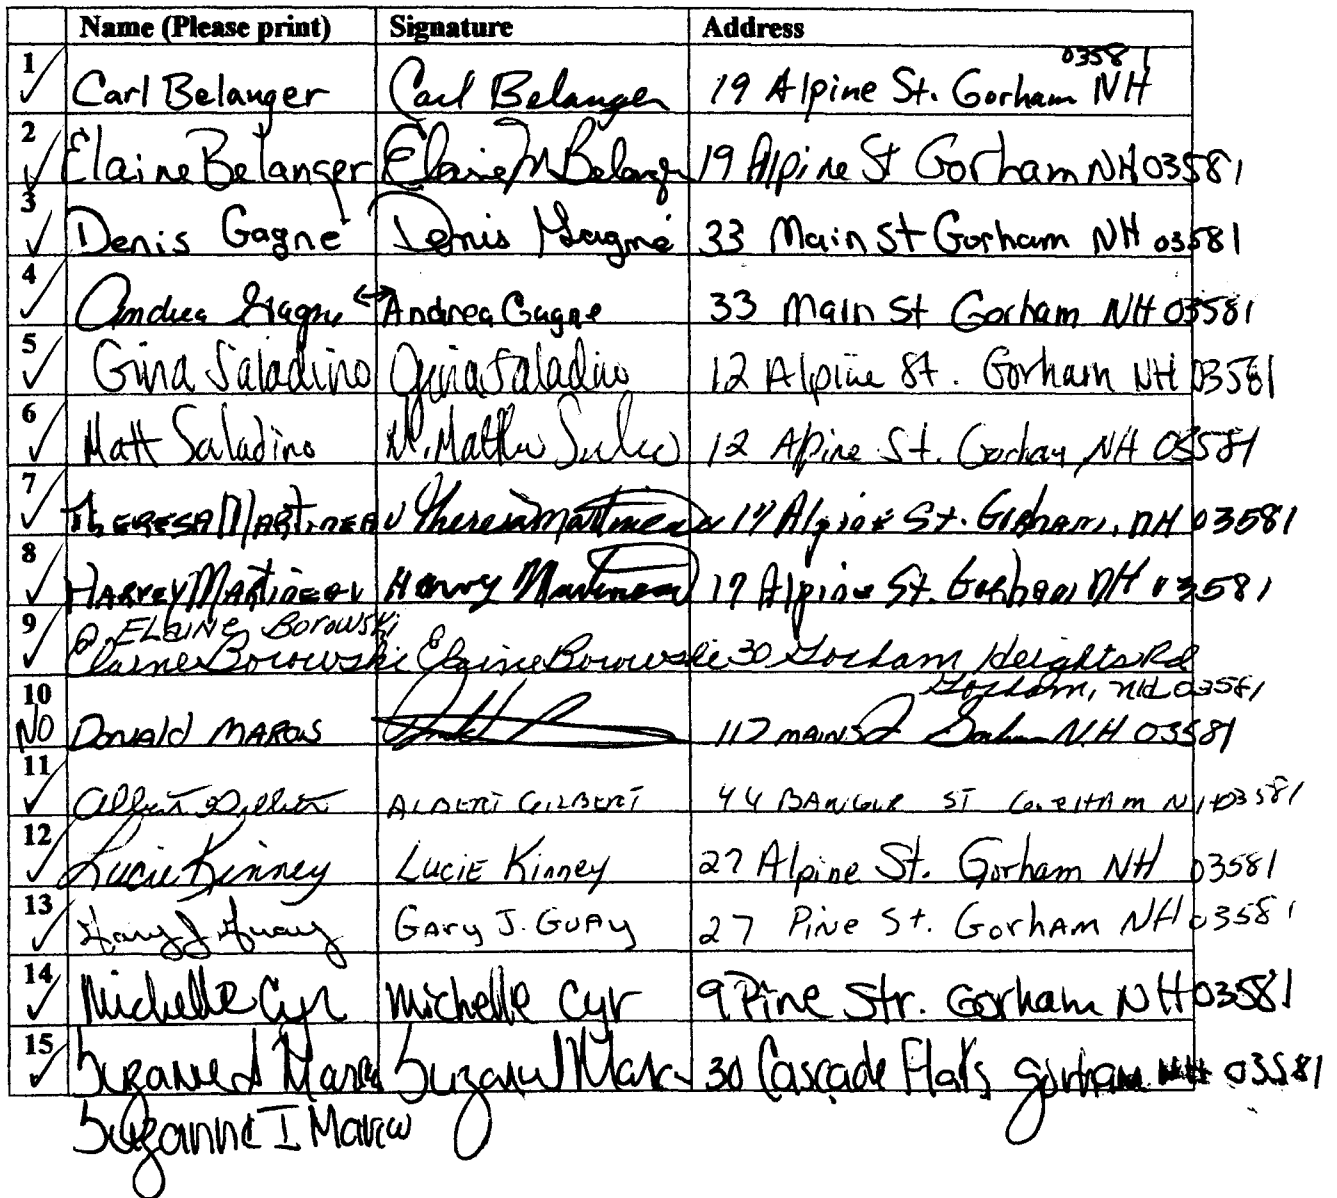 Name (Please print) Signature Address
03581
1 Carl Belanger Carl Belanger 19 Alpine St. Gorham NH
2 Elaine Belanger Elaine M Belanger 19 Alpine St Gorham NH 03581
3 Denis Gagne Denis Gagné 33 Main St Gorham NH 03581
4 Andrea Gagne ↔ Andrea Gagne 33 Main St Gorham NH 03581
5 Gina Saladino Gina Saladino 12 Alpine St. Gorham NH 03581
6 Matt Saladino 12 Alpine St. Gorham NH 03581
7 THERESA MARTINEAU Theresa Martineau Alpine St. Gorham, NH 03581
8 HARVEY MARTINEAU Harvey Martineau Alpine St. Gorham NH 03581
ELAINE BOROWSKI
9 Elaine Borowski Elaine Borowski 30 Gorham Heights Rd
Gorham, NH 03581
10
NO Donald MARCUS 117 MAIN St Gorham NH 03581
11 Albert Gilbert ALBERT GILBERT 44 BANGOR ST GORHAM NH 03581
12 Lucie Kinney LUCIE Kinney 27 Alpine St. Gorham NH 03581
13 Gary J Guay GAry J. GUAy 27 Pine St. Gorham NH 03581
14 Michelle Cyr Michelle Cyr 9 Pine Str. Gorham NH 03581
15 Suzanne I 30 Cascade Flats gorham NH 03581
Suzanne I